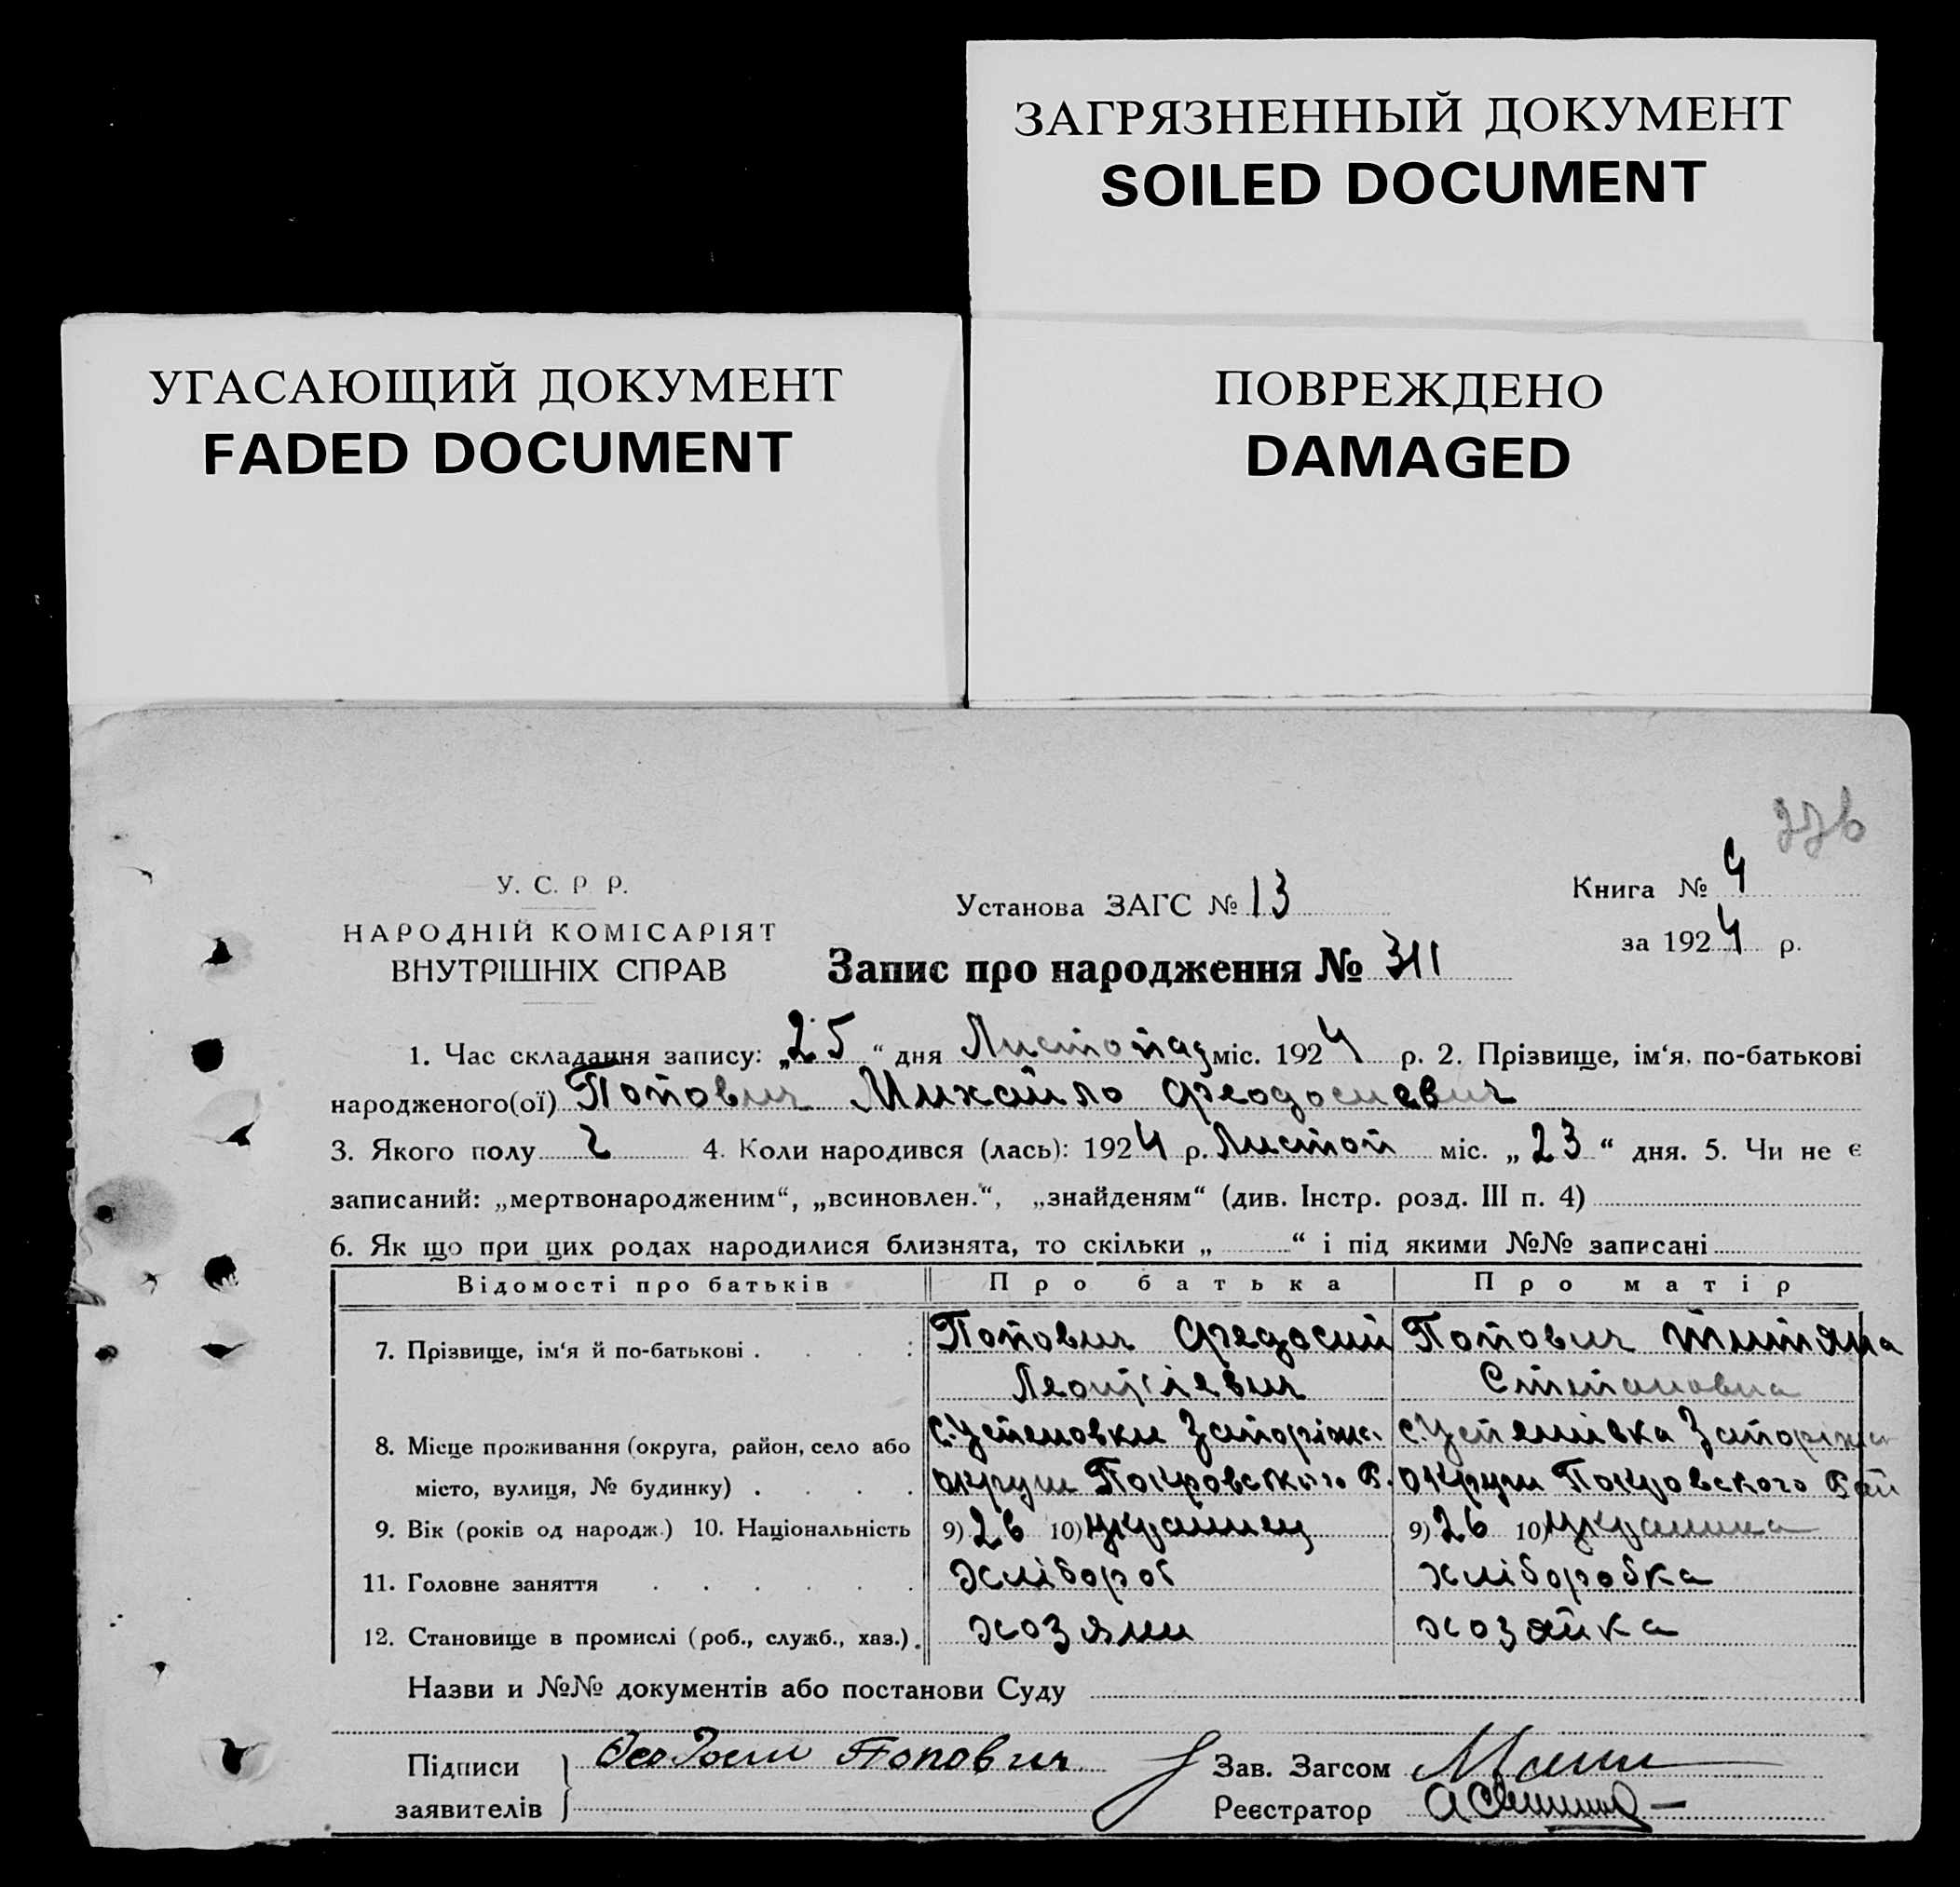 ЗАГРЯЗНЕННЫЙ ДОКУМЕНТ
SOILED DOCUMENT
УГАСАЮЩИЙ ДОКУМЕНТ
FADED DOCUMENT
ПОВРЕЖДЕНО
DAMAGED
У. С. Р. Р.
НАРОДНІЙ КОМІСАРІЯТ
ВНУТРІШНІХ СПРАВ
Установа ЗАГС № 13
Книга № 4
за 1924 р.
Запис про народження № 311
1. Час складання запису: „25“ дня Листопад міс. 1924 р. 2. Прізвище, ім‘я, по-батькові
народженого(ої) Попович Михайло Феодосиевич
3. Якого полу ч 4. Коли народився (лась): 1924 р. Листоп міс. „23“ дня. 5. Чи не є
записаний: „мертвонародженим“, „всиновлен.“, „знайденям“ (див. Інстр. розд. III п. 4)
6. Як що при цих родах народилися близнята, то скільки „ “ і під якими №№ записані
Відомості про батьків Про батька Про матір
7. Прізвище, ім‘я й по-батькові . . . : Попович Федосий Попович Титяна
Степановна
8. Місце проживання (округа, район, село або с. Успеновки Запоріж. с. Успенівка Запоріжа
місто, вулиця, № будинку) . . . . округи Покровського Р. округи Покровского Рай
9. Вік (років од народж.) 10. Національність 9) 26 10) украинец 9) 26 10) украинка
11. Головне заняття . . . . . . хлібороб хліборобка
12. Становище в промислі (роб., служб., хаз.). хозяин хозяйка
Назви и №№ документів або постанови Суду
Підписи Феодоси Попович Зав. Загсом
заявителів Реєстратор